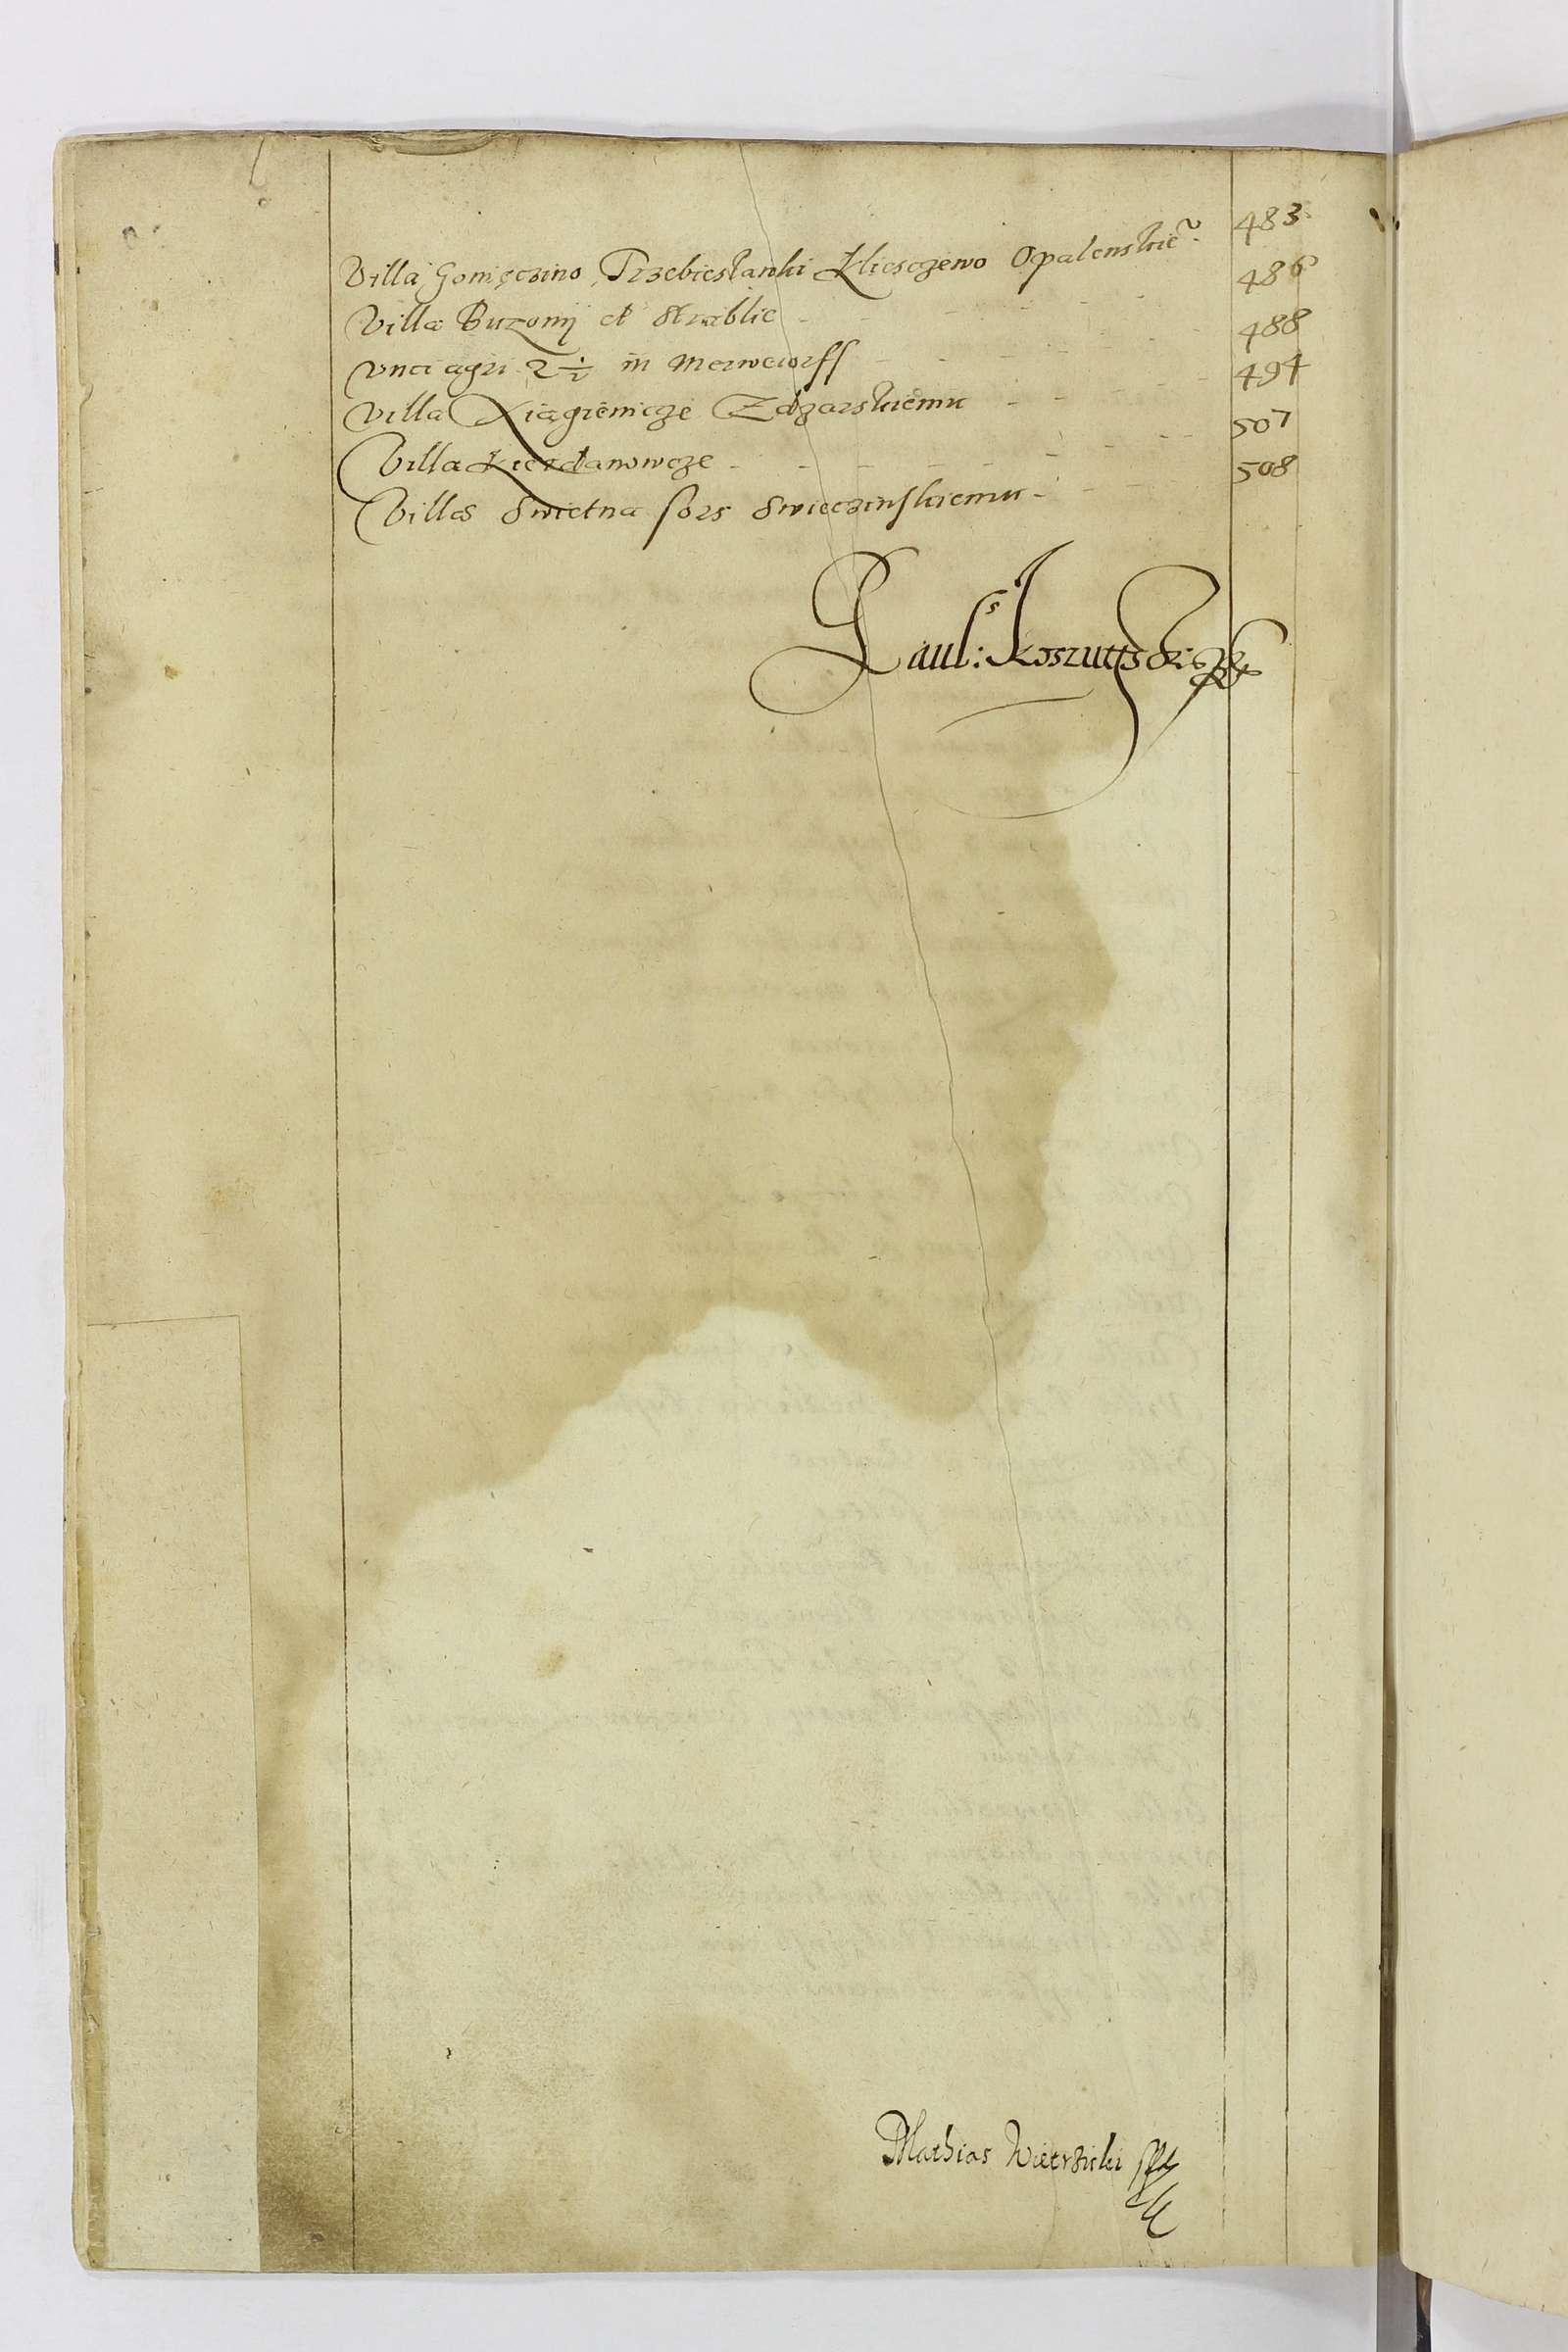 Villa Gonięczino Trzebiesłanki Kliesczewo Opalenskie 483
Villæ Buzony et Strablie 486
Unci agri 2 1/2 in Merweiorff 488
Villa Xiągienicze Zdzarskiemu 494
Villa Kierdanowcze 507
Villæ Swietna sors Swięczinskiemu 508
Paul:s Koszuttski
Mathias Wietrzicki